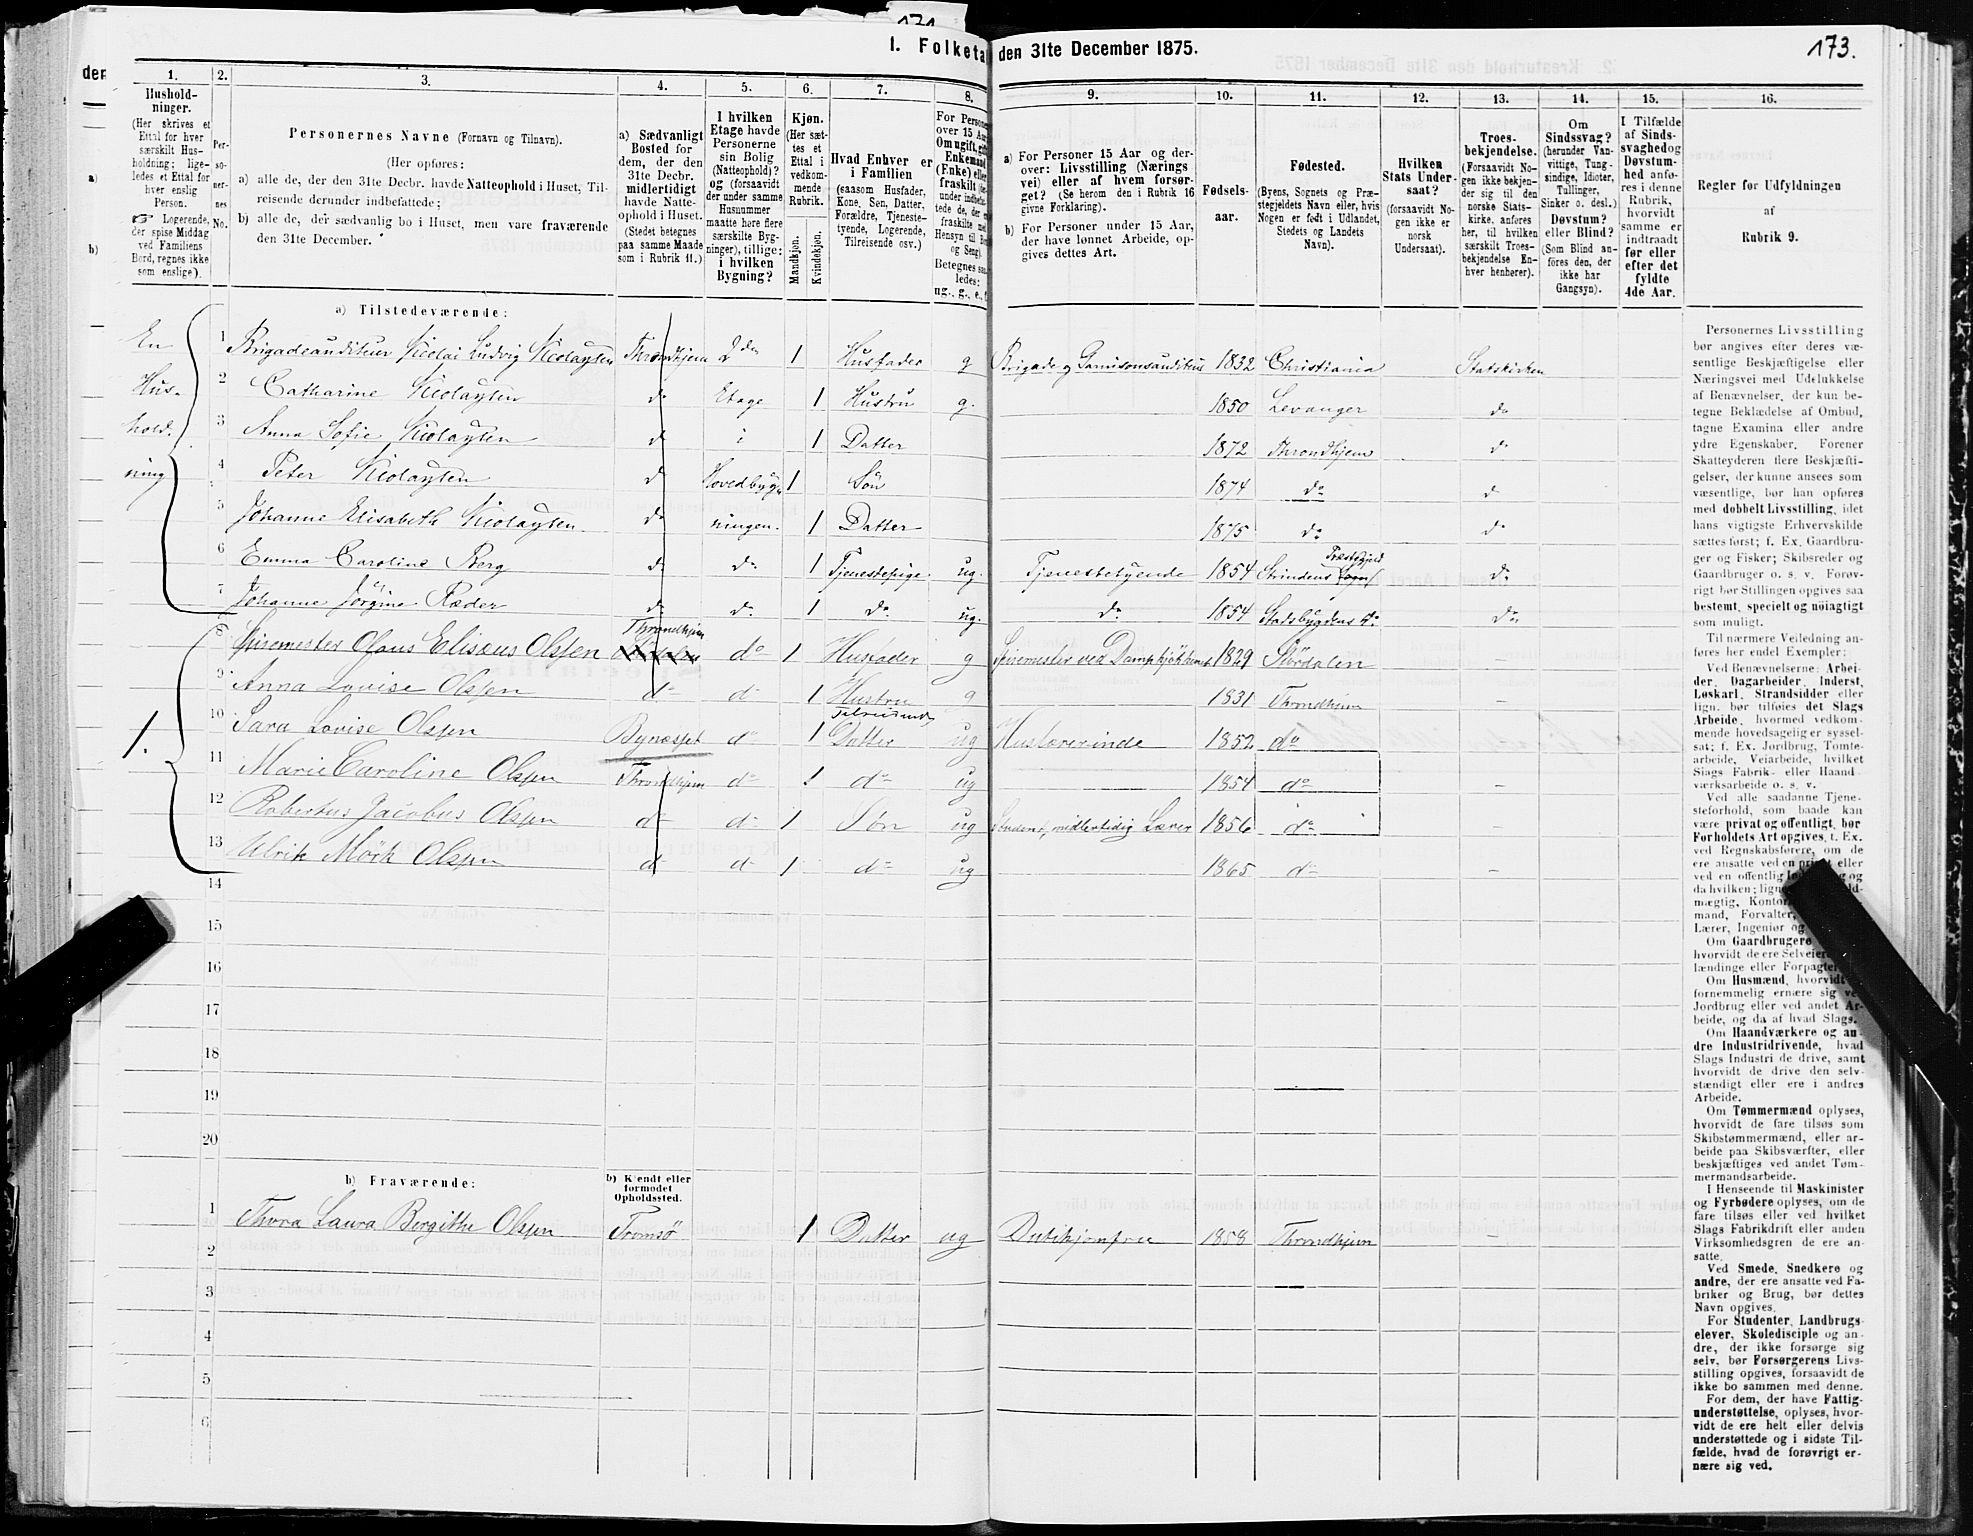 171
173.
I. Folketa
den 31te December 1875.
1. 2. 3. 4. 5. 6. 7. 8. 9. 10. 11. 12. 13. 14. 15. 16.
Husholdninger.
(Her skrives et
Ettal for hver
særskilt Hus-
holdning; lige-
ledes et Ettal for
hver enslig
Person.
☞ Logerende,
der spise Middag
ved Familiens
Bord, regnes ikke
som enslige).
Per-
so-
ner-
nes
No.
Personernes Navne (Fornavn og Tilnavn).
(Her opføres:
a) alle de, der den 31te Decbr. havde Natteophold i Huset, Til-
reisende derunder indbefattede;
b) alle de, der sædvanlig bo i Huset, men vare fraværende
den 31te December.
a) Sædvanligt
Bosted for
dem, der den
31te Decbr.
midlertidigt
havde Natte-
ophold i Huset.
(Stedet betegnes
paa samme Maade
som i Rubrik 11.)
I hvilken
Etage havde
Personerne
sin Bolig
(Natteophold)?
og (forsaavidt
der under samme
Husnummer
maatte høre flere
særskilte Byg-
ninger), tillige:
i hvilken
Bygning?
Kjøn.
(Her sæt-
tes et
Ettal i
vedkom-
mende
Rubrik.
Mandkjøn.
Kvindekjøn.
Hvad Enhver er
i Familien
(saasom Husfader,
Kone, Søn, Datter,
Forældre, Tjeneste-
tyende, Logerende,
Tilreisende osv.)
For Persone
over 15 Aa
Om ugift, gift
Enkemand
(Enke) eller
fraskilt
Betegnes saa
ledes:
ug., g., e., f.
a) For Personer 15 Aar og der-
over: Livsstilling (Nærings
vei) eller af hvem forsør-
get? (Se herom den i Rubrik 16
givne Forklaring).
b) For Personer under 15 Aar,
der have lønnet Arbeide, op-
gives dettes Art.
Fødsels-
aar.
Fødested.
(Byens, Sognets og Præ-
stegjeldets Navn eller, hvis
Nogen er født i Udlandet,
Stedets og Landets
Navn).
Hvilken
Stats Under-
saat?
(forsaavidt No-
gen ikke er
norsk
Undersaat).
Troes-
bekjendelse.
(Forsaavidt No-
gen ikke bekjen-
der sig til den
norske Stats-
kirke, anføres
her, til hvilken
særskilt Troes-
bekjendelse En-
hver henhører).
Om
Sindssvag?
(herunder Van-
vittige, Tung-
sindige, Idioter,
Tullinger,
Sinker o. desl.)
Døvstum?
eller Blind?
(Som Blind an-
føres den, der
ikke har
Gangsyn).
I Tilfælde
af Sinds-
svaghed og
Døvstum-
hed anfø-
res i denne
Rubrik,
hvorvidt
samme er
indtraadt
før eller
efter det
fyldte
4de Aar.
Regler for Udfyldningen
af
Rubrik 9.
a) Tilstedeværende:
En
Hus-
hold-
ning
1 Brigadeauditeur Nicolai Ludvig Nicolaysen Throndhjem 2den 1 Husfader g Brigade og Garnisonsauditeur 1832 Christiania Statskirken
2 Catharine Nicolaysen do Etage 1 Hustru g. 1850 Levanger do
3 Anna Sofie Nicolaysen do i 1 Datter 1872 Throndhjem do
4 Peter Nicolaysen do Hovedbyg- 1 Søn 1874 do do
5 Johanne Elisabeth Nicolaysen do ningen. 1 Datter 1875 do do
6 Emma Caroline Berg do do 1 Tjenestepige. ug. Tjenestetyende 1854 Strindens Sogn Præstegjeld do
7 Johanne Jørgine Ræder do do 1 do ug. do 1854 Stadsbygdens do do
8 Spisemester Olaus Elisæus Olssen Throndhjem do 1 Husfader g Spisemester ved Dampkjøkkenet 1829 Stördalen –
9 Anna Lovise Olssen do do 1 Hustru g 1831 Throndhjem
1.
10 Sara Lovise Olssen Bynæsset do 1 Tilreisende Datter ug Huslærerinde 1852 do
11 Marie Caroline Olssen Throndhjem do 1 do ug 1854 do –
12 Robertus Jacobus Olssen do do 1 Søn ug Student, midlertidig Lærer 1856 do –
13 Ulrik Mörk Olssen do do 1 do ug 1865 do –
14
15
16
17
18
19
20
b) Fraværende:
b) Kjendt eller
formodet
Opholdssted.
1 Thora Laura Bergitte Olssen Tromsö 1 Datter ug Butikjomfru 1858 Throndhjem –
2
3
4
5
6
Personernes Livsstilling
bør angives efter deres væ-
sentlige Beskjæftigelse eller
Næringsvei med Udelukkelse
af Benævnelser, der kun be-
tegne Beklædelse af Ombud,
tagne Examina eller andre
ydre Egenskaber. Forener
Skatteyderen flere Beskjæfti-
gelser, der kunne ansees som
væsentlige, bør han opføres
med dobbelt Livsstilling, idet
hans vigtigste Erhvervskilde
sættes først; f. Ex. Gaardbru-
ger og Fisker; Skibsreder og
Gaardbruger o. s. v. Forøv-
rigt bør Stillingen opgives saa
bestemt, specielt og nöiagtigt
som muligt.
Til nærmere Veiledning an-
føres her endel Exempler:
Ved Benævnelserne: Arbei-
der, Dagarbeider, Inderst,
Løskarl, Strandsidder eller
lign. bør tilføies det Slags
Arbeide, hvormed vedkom-
mende hovedsagelig er syssel-
sat; f. Ex. Jordbrug, Tomte-
arbeide, Veiarbeide, hvilket
Slags Fabrik- eller Haand-
værksarbeide o. s. v.
Ved alle saadanne Tjene-
steforhold, som baade kan
være privat og offentligt, bør
Forholdets Art opgives, t. Ex.
ved Regnskabsførere, om de
ere ansatte ved en privat eller
ved en offentlig
da hvilken; lign
mægtig, Kontor
mand, Forvalter,
Lærer, Ingeniør og
Om Gaardbrugere
hvorvidt de ere Selveiere,
lændinge eller Forpagtere
Om Husmænd, hvorvidt
fornemmelig ernære sig ved
Jordbrug eller ved andet Ar-
beide, og da af hvad Slags.
Om Haandværkere og an-
dre Industridrivende, hvad
Slags Industri de drive, samt
hvorvidt de drive den selv-
stændigt eller ere i andres
Arbeide.
Om Tømmermænd oplyses,
hvorvidt de fare tilsøs som
Skibstømmermænd, eller ar-
beide paa Skibsværfter, eller
beskjæftiges ved andet Tøm-
mermandsarbeide.
I Henseende til Maskinister
og Fyrbødere oplyses, om de
fare tilsøs eller ved hvilket
Slags Fabrikdrift eller anden
Virksomhedsgren de ere an-
satte.
Ved Smede, Snedkere og
andre, der ere ansatte ved Fa-
briker og Brug, bør dettes
Navn opgives.
For Studenter, Landbrugs-
elever, Skoledisciple og an-
dre, der ikke forsørge sig
selv, bør Forsørgerens Livs-
stilling opgives, forsaavidt de
ikke bo sammen med denne.
For dem, der have Fattig-
understøttelse, oplyses, hvor-
vidt de ere helt eller delvis
understøttede og i sidste Til-
fælde, hvad de forøvrigt er-
nære sig ved.